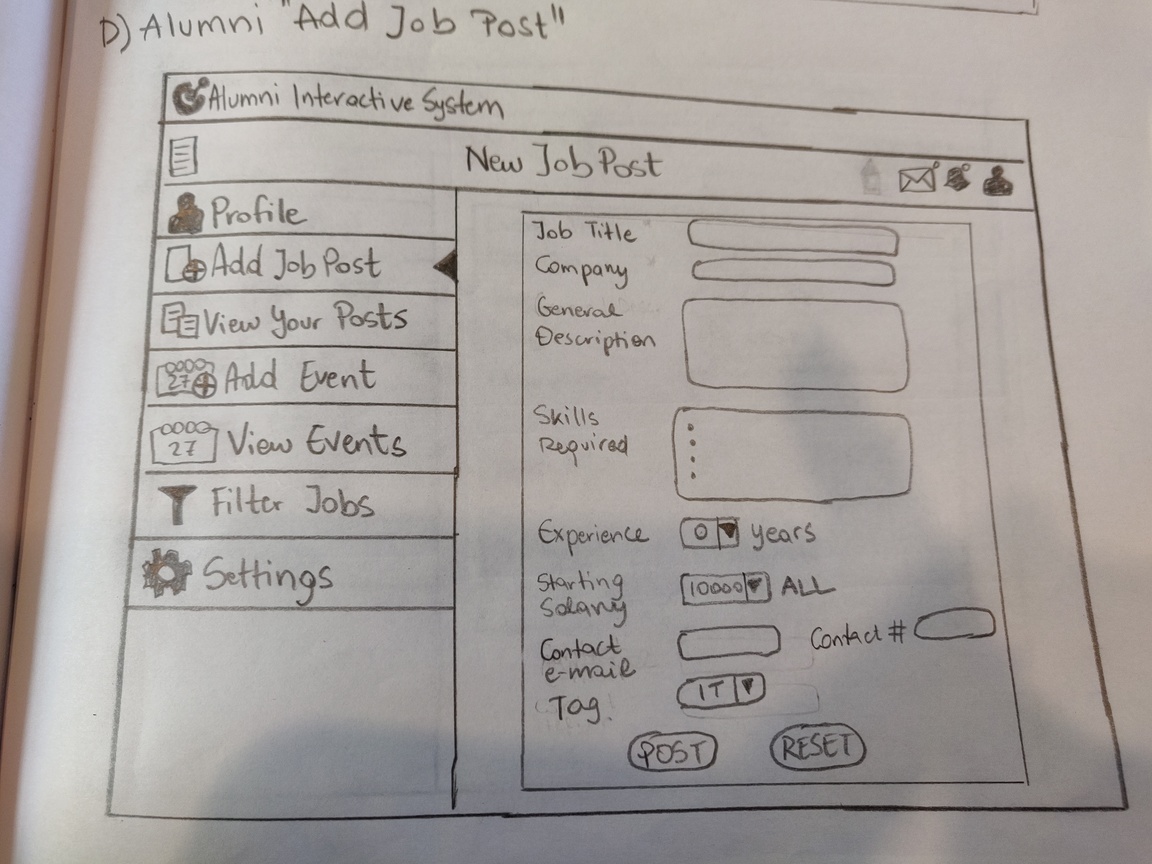 D) Alumni "Add Job Post"
Alumni Interactive System
New Job Post
Profile
Add Job Post
View Your Posts
27 Add Event
27 View Events
Filter Jobs
Settings
Job Title
Company
General
Description
Skills
Required
Experience 0 years
Starting 10000 ALL
Salary
Contact Contact #
e-mail
Tag. IT
POST RESET